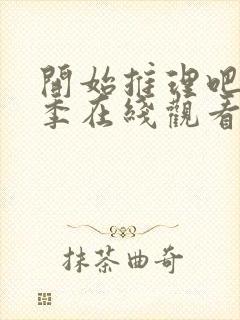 開始推理吧
季在綫觀看
抹茶曲奇